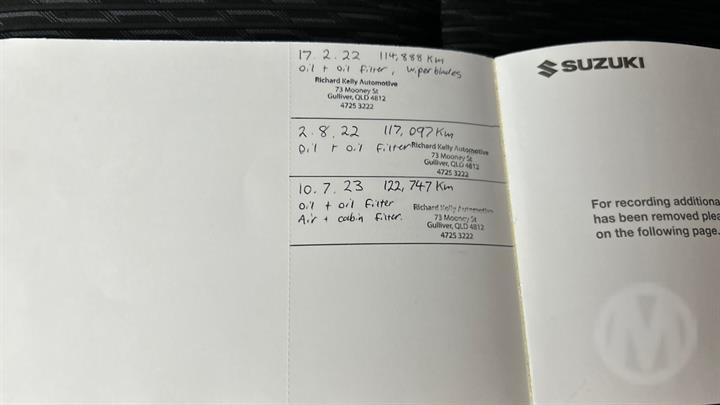 17.2.22 114,888 Km
Oil + Oil Filter, wiper blades
Richard Kelly Automotive
73 Mooney St
Gulliver, QLD 4812
4725 3222
2.8.22 117,097 Km
Oil + Oil Filter
Richard Kelly Automotive
73 Mooney St
Gulliver, QLD 4812
4725 3222
10.7.23 122,747 Km
Oil + oil filter
Air + cabin filter.
Richard Kelly Automotive
73 Mooney St
Gulliver, QLD 4812
4725 3222
SUZUKI
For recording additiona
has been removed plea
on the following page.
M